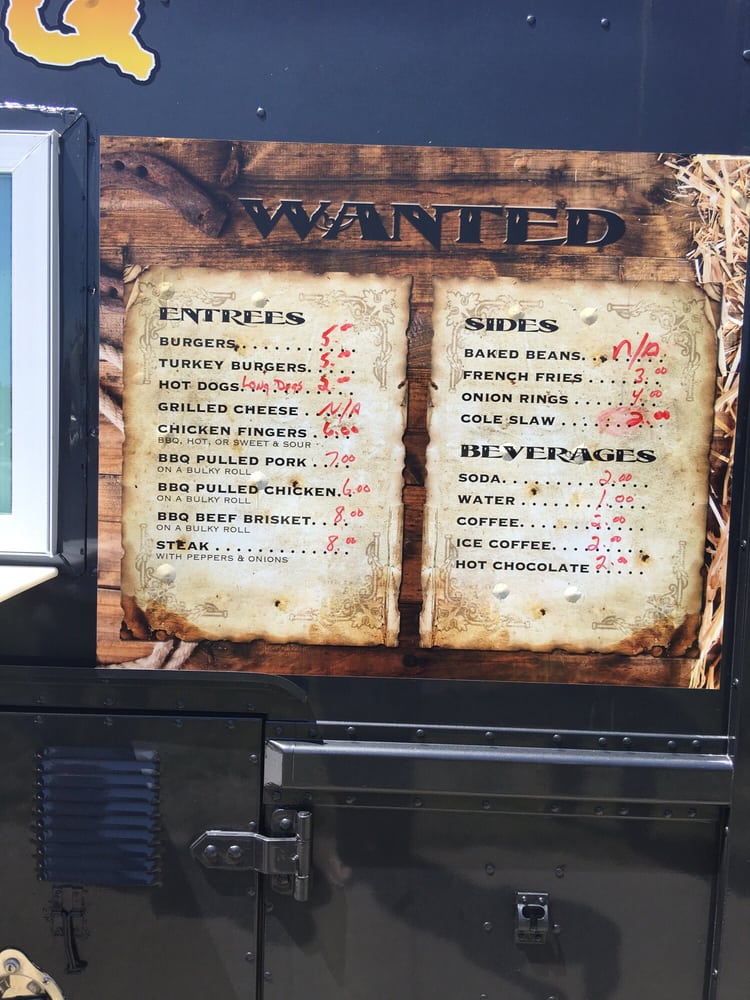 Q
WANTED
ENTREES
BURGERS.......... 5.00
TURKEY BURGERS. 5.00
HOT DOGS. Long Dogs
GRILLED CHEESE ... N/A
CHICKEN FINGERS .. 6.00
BBQ, HOT, OR SWEET & SOUR
BBQ PULLED PORK .. 7.00
ON A BULKY ROLL
BBQ PULLED CHICKEN. 6.00
ON A BULKY ROLL
BBQ BEEF BRISKET... 8.00
ON A BULKY ROLL
STEAK ............ 8.00
WITH PEPPERS & ONIONS
SIDES
BAKED BEANS... N/A
FRENCH FRIES ..... 3.00
ONION RINGS ...... 4.00
COLE SLAW ....... 2.00
BEVERAGES
SODA............ 2.00
WATER .......... 1.00
COFFEE..........
ICE COFFEE...... 2.00
HOT CHOCOLATE .. 2.00